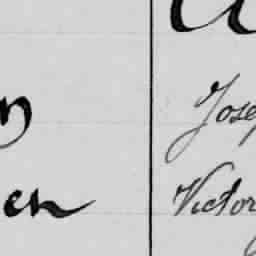 n Jose
en Victor